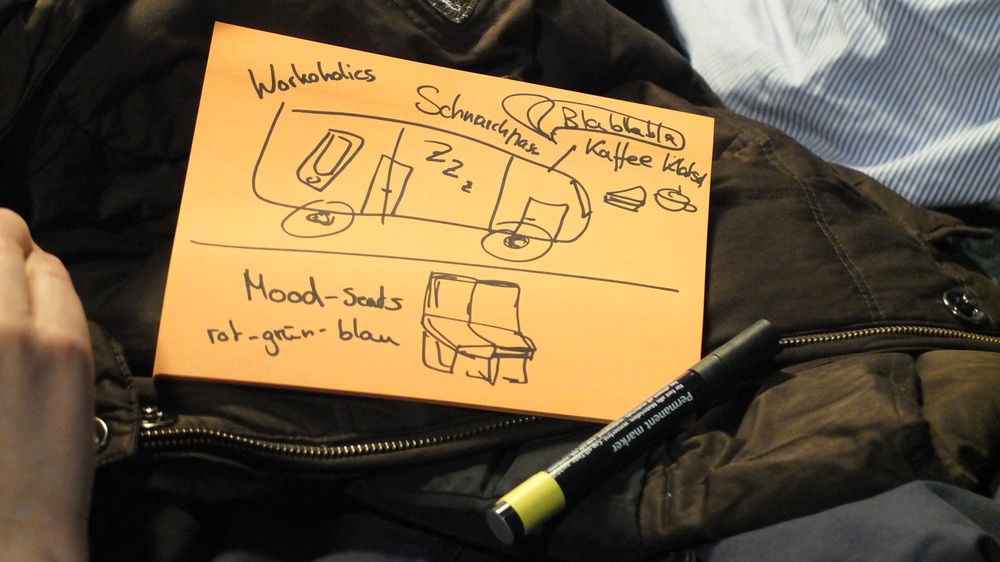 Workoholics
Schnarchphase
Blablabla
Kaffee Klatsch
Z Z z
Mood-Seats
rot-grün-blau
Permanent marker